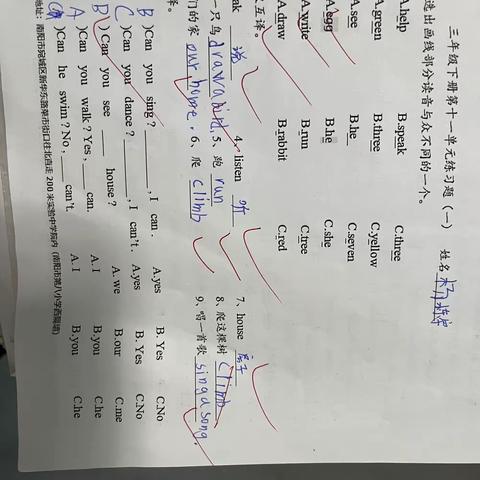 三年级下册第十一单元练习题（一） 姓名
选出画线部分读音与众不同的一个。
A.help B.speak C.three
A.green B.three C.yellow
A.see B.he C.seven
A.egg B.he C.she
A.write B.run C.tree
A.draw B.rabbit C.red
互译。
eak 说 4、listen 听 7、house 房子
一只鸟 draw a bird 5、跑 run 8、爬这棵树 climb
们的家 our home. 6、爬 climb 9、唱一首歌 sing a song.
择。
B )Can you sing ? , I can . A.yes B. Yes C.No
C )Can you dance ? , I can't. A.yes B. Yes C.No
B )Can you see house ? A. we B.our C.me
A )Can you walk ? Yes , can't. A.I B.you C.he
)Can he swim ? No , can't. A.I B.you C.he
地址：南阳市宛城区新华东路菜市街口往北直走 200 米实验中学院内（南阳市第八小学西隔墙）